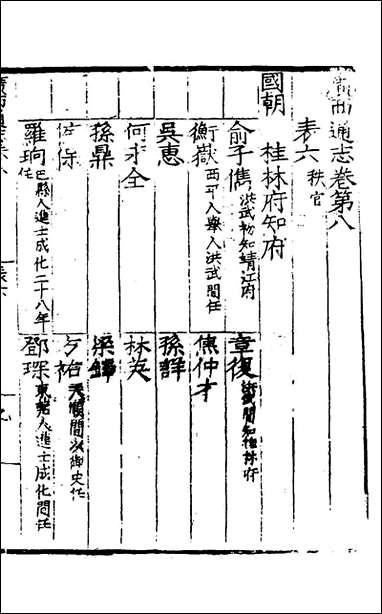 廣西通志卷第八
表六 秩官
國朝
桂林府知府
俞子儁 洪武初知靖江府
章復 洪武間知桂林府
衡嶽 西平人舉人洪武間任
焦仲才
吳惠
孫詳
何永全
林英
孫鼎
梁鐸
祐 天順間以御史任
羅珦 巴縣人進士成化二十八年任
鄧琛 東莞人進士成化間任